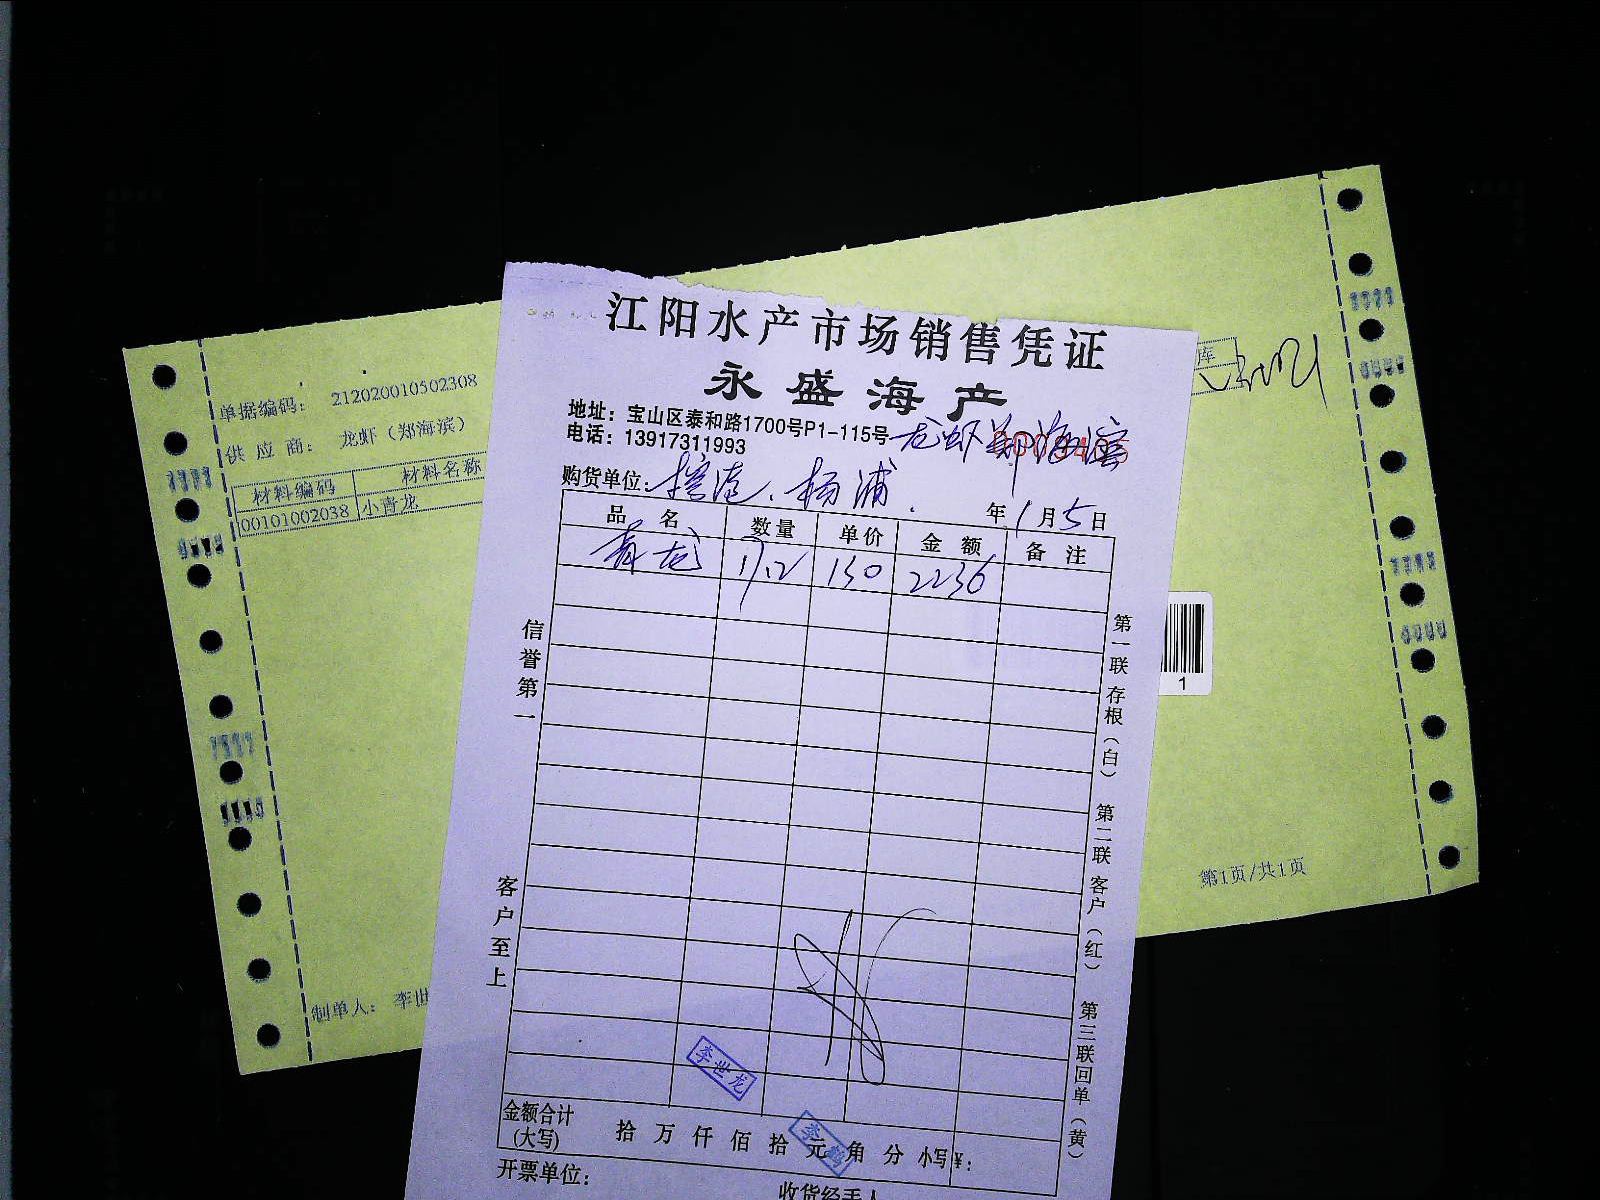 江阳水产市场销售凭证
永盛海产
地址：宝山区泰和路1700号P1-115号
电话：13917311993
龙虾郑海滨
购货单位：控江、杨浦.
年1月5日
品名 数量 单价 金额 备注
青龙 17.2 130 2236
信誉第一
客户至上
第一联存根（白） 第二联客户（红） 第三联回单（黄）
李世龙
金额合计（大写） 拾万仟佰拾元角分 小写¥：
开票单位：
收货经手人
单据编码： 212020010502308
供应商： 龙虾（郑海滨）
材料编码 材料名称
00101002038 小青龙
库
1
第1页/共1页
制单人： 李世